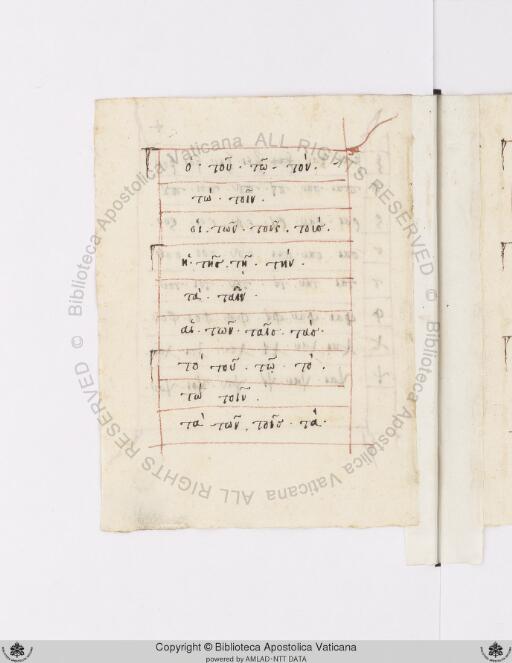 ὁ · τοῦ · τῶ · τὸν ·
τὼ · τοῖν ·
οἱ · τῶν · τοῖς · τοὺς ·
ἡ · τῆς · τῆ · τὴν ·
τὰ · ταῖν ·
αἱ · τῶν · ταῖς · τὰς ·
τὸ · τοῦ · τῶ · τὸ ·
τὼ τοῖν ·
τὰ · τῶν · τοῖς · τὰ ·
© Biblioteca Apostolica Vaticana ALL RIGHTS RESERVED
© Biblioteca Apostolica Vaticana ALL RIGHTS RESERVED
Copyright © Biblioteca Apostolica Vaticana
powered by AMLAD-NTT DATA